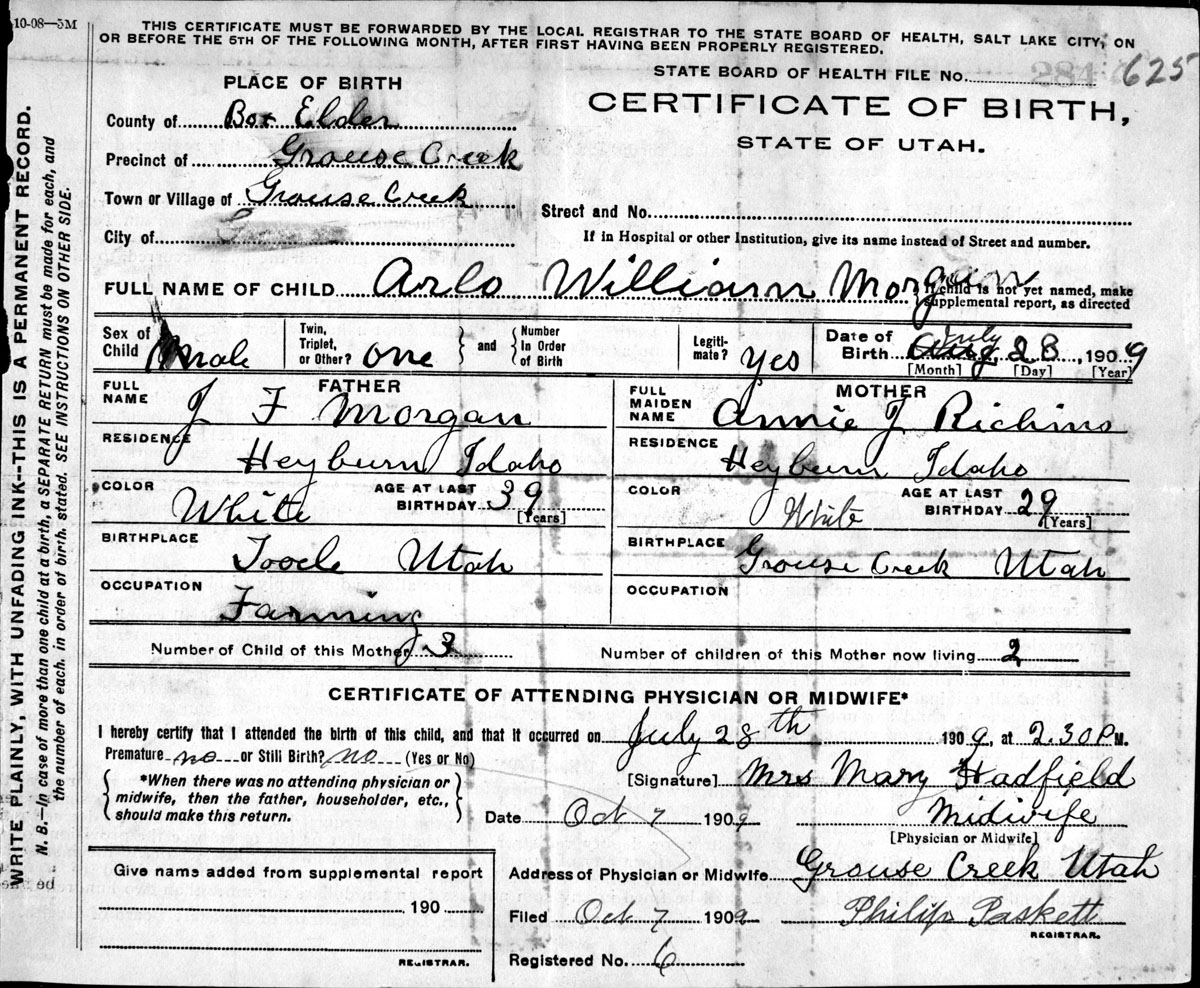 10-08—3M
THIS CERTIFICATE MUST BE FORWARDED BY THE LOCAL REGISTRAR TO THE STATE BOARD OF HEALTH, SALT LAKE CITY, ON
OR BEFORE THE 5TH OF THE FOLLOWING MONTH, AFTER FIRST HAVING BEEN PROPERLY REGISTERED.
STATE BOARD OF HEALTH FILE No. 284 625
PLACE OF BIRTH
CERTIFICATE OF BIRTH,
STATE OF UTAH.
County of Box Elder
Precinct of Grouse Creek
Town or Village of Grouse Creek
Street and No.
City of
If in Hospital or other Institution, give its name instead of Street and number.
FULL NAME OF CHILD Arlo William Morgan
If child is not yet named, make
supplemental report, as directed
Sex of Child Male
Twin, Triplet, or Other? one
and
Number In Order of Birth
Legiti-mate? yes
Date of Birth Aug July 28, 1909
[Month] [Day] [Year]
FATHER
FULL NAME J F Morgan
RESIDENCE
Heyburn Idaho
COLOR White
AGE AT LAST BIRTHDAY 39
[Years]
BIRTHPLACE
Tooele Utah
OCCUPATION
Farming
MOTHER
FULL MAIDEN NAME Annie J Richins
RESIDENCE
Heyburn Idaho
COLOR White
AGE AT LAST BIRTHDAY 29
[Years]
BIRTHPLACE
Grouse Creek Utah
OCCUPATION
Number of Child of this Mother 3
Number of children of this Mother now living 2
CERTIFICATE OF ATTENDING PHYSICIAN OR MIDWIFE*
I hereby certify that I attended the birth of this child, and that it occurred on July 28th 1909, at 2.30 P M.
Premature no or Still Birth? no (Yes or No)
*When there was no attending physician or
midwife, then the father, householder, etc.,
should make this return.
[Signature] Mrs Mary Hadfield
Date Oct 7 1909 Midwife
[Physician or Midwife]
Give name added from supplemental report
190
REGISTRAR.
Address of Physician or Midwife Grouse Creek Utah
Filed Oct 7 1909 Philip Paskett
REGISTRAR.
Registered No. 6
WRITE PLAINLY, WITH UNFADING INK--THIS IS A PERMANENT RECORD.
N. B.—In case of more than one child at a birth, a SEPARATE RETURN must be made for each, and
the number of each, in order of birth, stated. SEE INSTRUCTIONS ON OTHER SIDE.